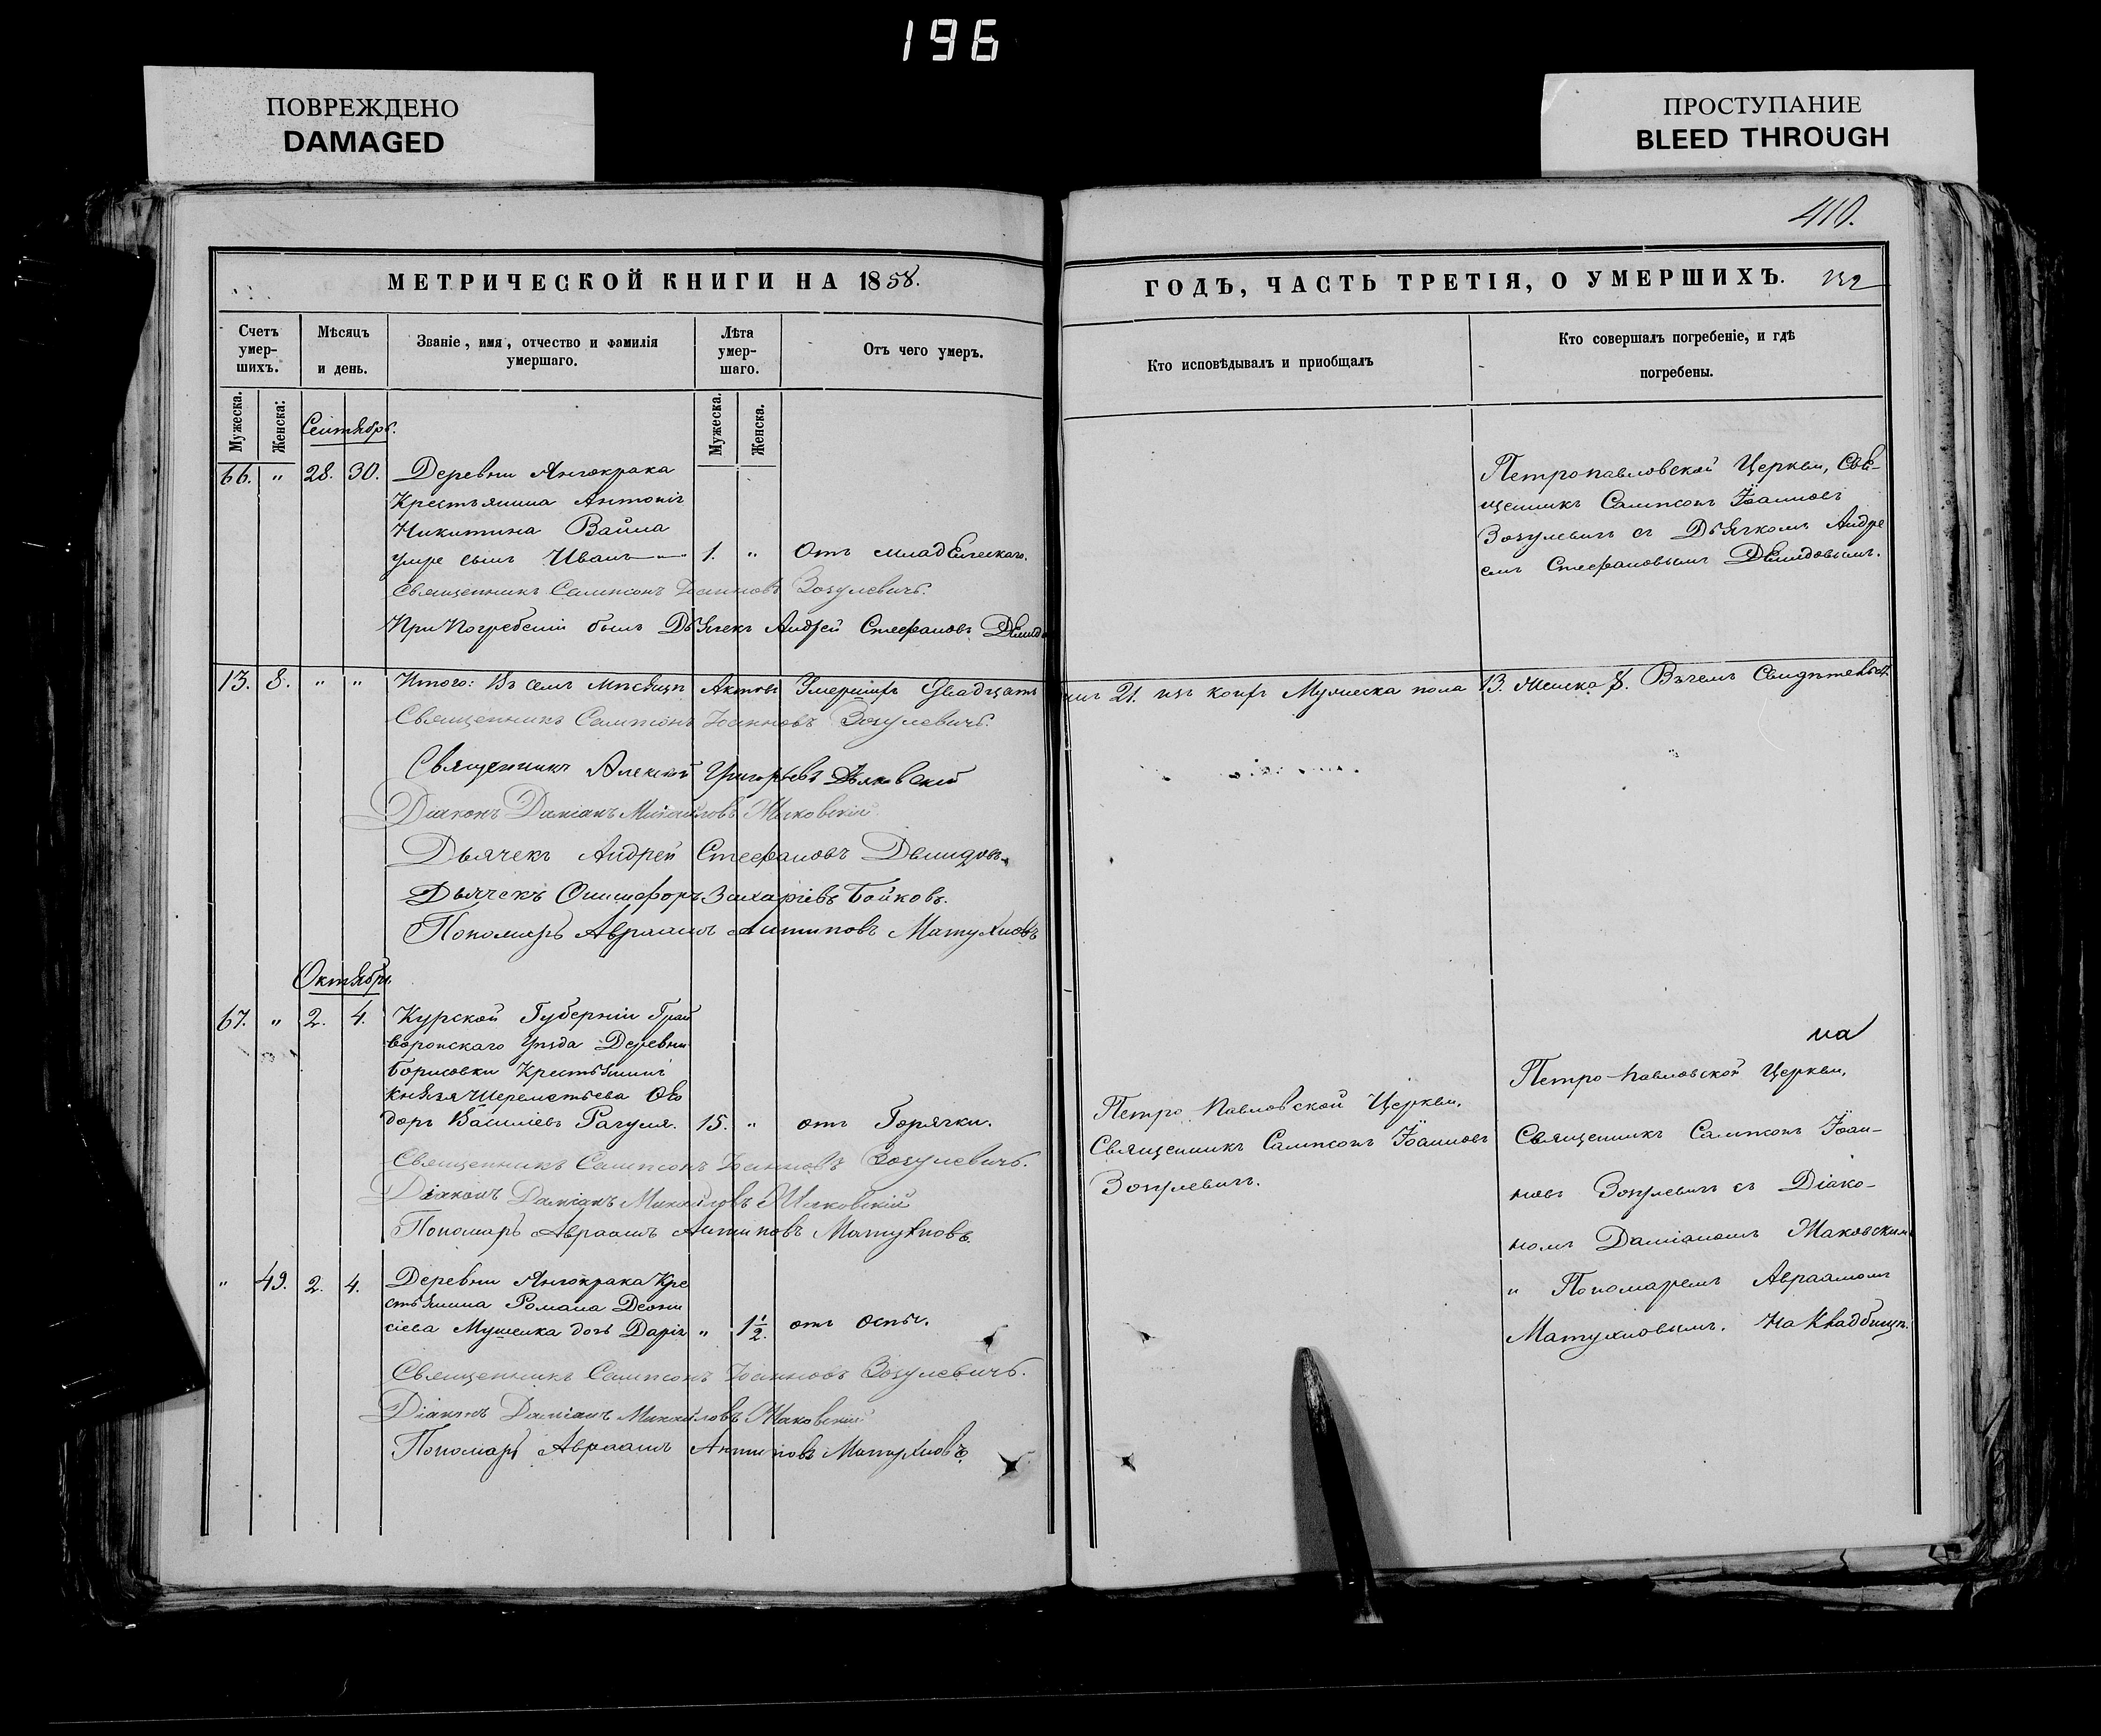 196
ПОВРЕЖДЕНО
DAMAGED
ПРОСТУПАНИЕ
BLEED THROUGH
410.
МЕТРИЧЕСКОЙ КНИГИ НА 1858.
ГОДЪ, ЧАСТЬ ТРЕТІЯ, О УМЕРШИХЪ.
Счетъ умер-шихъ.
Мѣсяцъ и день.
Званіе, имя, отчество и фамилія умершаго.
Лѣта умер-шаго.
Отъ чего умеръ.
Кто исповѣдывалъ и пріобщалъ
Кто совершалъ погребеніе, и гдѣ погребены.
Мужеска.
Женска:
Мужеска.
Женска.
Сентябрь.
66. " 28. 30. Деревни Янчокрака
Крестьянина Антонія
Никитина Вайла
умре сынъ Иванъ 1. " Отъ младенческаго.
Священникъ Сампсонъ Іоанновъ Зозулевичъ.
При Погребеніи былъ Дьячекъ Андрей Стефановъ
Петропавловской Церкви, Свя-
щенникъ Сампсонъ Іоанновъ
Зозулевичъ съ Дьячкомъ Андре
емъ Стефановымъ Демидовымъ.
13. 8. " " Итого: Въ семъ мѣсяцѣ Умершихъ Двадцать 21. изъ коихъ Мужеска пола 13. Женска 8. Въ чемъ
Священникъ Сампсонъ Іоанновъ Зозулевичъ.
Священникъ Алексѣй Григорьевъ Дьяковскій
Діаконъ Даміанъ Михайловъ Маковскій
Дьячекъ Андрей Стефановъ Демидовъ.
Дьячекъ Онисифоръ Захаріевъ Бойковъ.
Пономарь Авраамъ Антиповъ Матухновъ
Октябрь
67. " 2. 4. Курской Губерніи Грай
воронскаго уѣзда Деревни
Борисовки Крестьянинъ
князя Шереметьева Ѳео
доръ Василіевъ Рагуля. 15. " отъ Горячки.
Священникъ Сампсонъ Іоанновъ Зозулевичъ.
Діаконъ Даміанъ Михайловъ Маковскій
Пономарь Авраамъ Антиповъ Матухновъ.
Петро Павловской Церкви,
Священникъ Сампсонъ Іоанновъ
Зозулевичъ.
на
Петро-Павловской Церкви,
Священникъ Сампсонъ Іоан-
новъ Зозулевичъ съ Діако-
номъ Даміаномъ Маковскимъ
Пономаремъ Авраамомъ
Матухновымъ. На Кладбищѣ.
" 49. 2. 4. Деревни Янчокрака Кре
стьянина Романа Деони
сіева Мушенка дочь Дарія " 1½. отъ оспы.
Священникъ Сампсонъ Іоанновъ Зозулевичъ.
Діаконъ Даміанъ Михайловъ Маковскій
Пономарь Авраамъ Антиповъ Матухновъ.